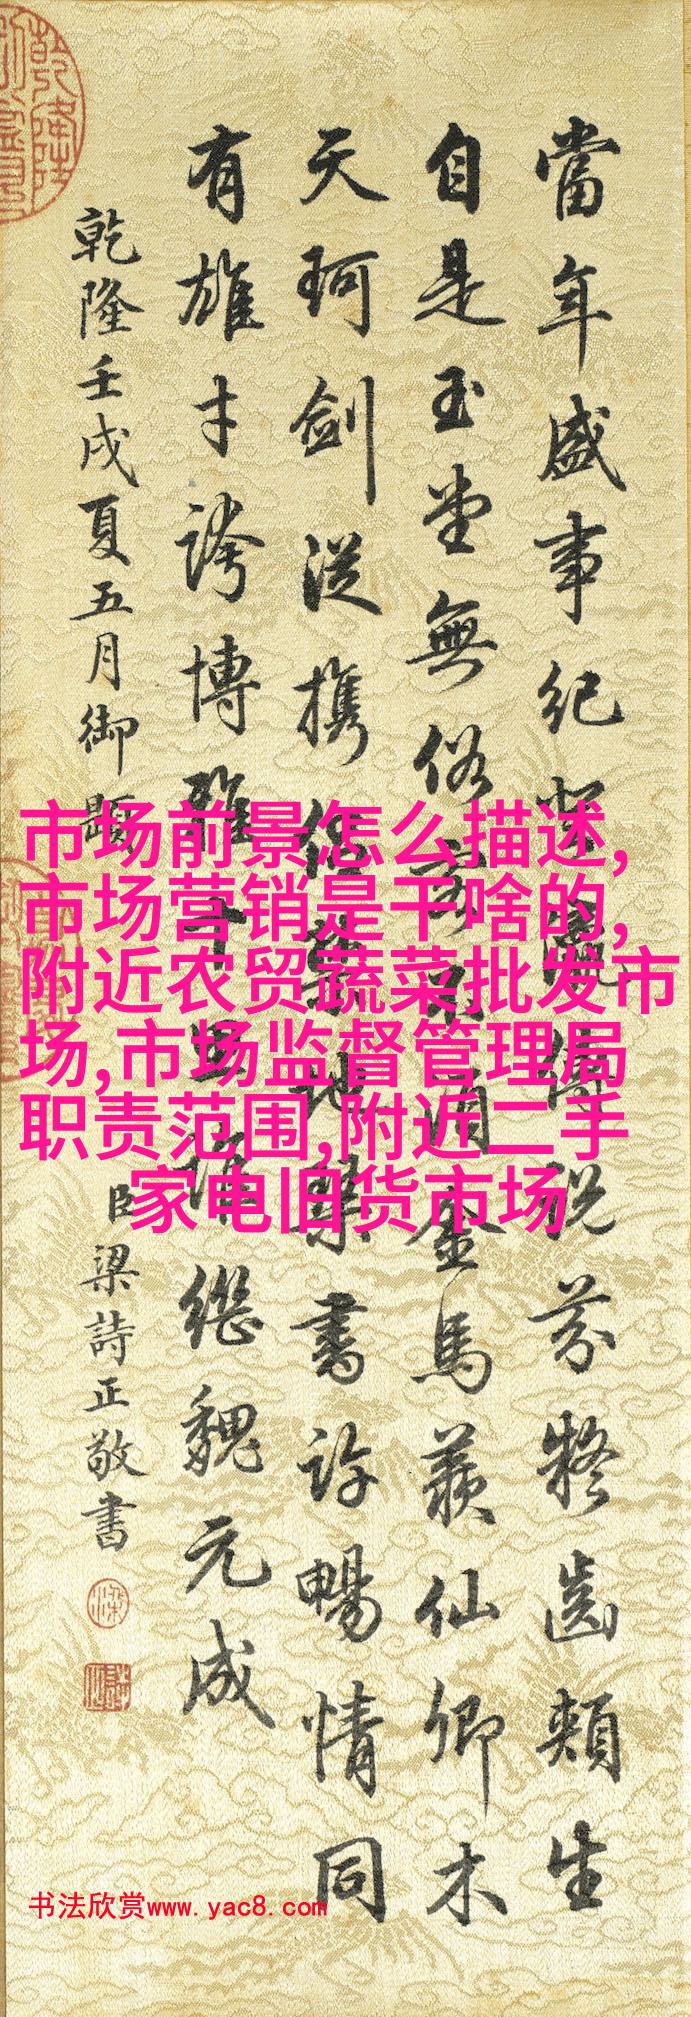 當年盛事紀登瀛傳説芬齒頰生
自是玉堂無俗客不須金馬羨仙卿木
天珂劍從攜便禁地琴書許暢情同
有雄才誇博雅十思誰繼魏元成
乾隆壬戌夏五月御題
臣梁詩正敬書
市场前景怎么描述,
市场营销是干啥的,
附近农贸蔬菜批发市
场,市场监督管理局
职责范围,附近二手
家电旧货市场
书法欣赏www.yac8.com